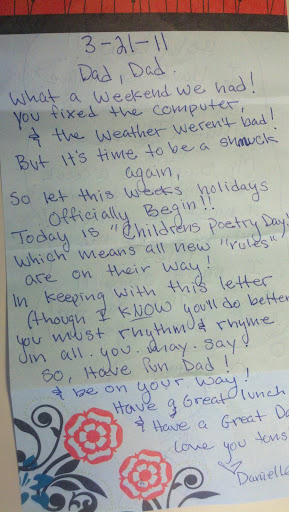 3-21-11
Dad, Dad.
What a weekend we had!
You fixed the computer,
& the weather weren't bad!
But it's time to be a shmuck
again,
So let this weeks holidays
Officially Begin!!
Today is "Childrens Poetry Day!"
Which means all new "rules"
are on their way!
In keeping with this letter
(though I KNOW you'll do better)
you must rhythm & rhyme
in all. you. may. say!
So, Have Fun Dad!
& be on your way!
Have a Great lunch
& Have a Great Da
Love you tons
Danielle